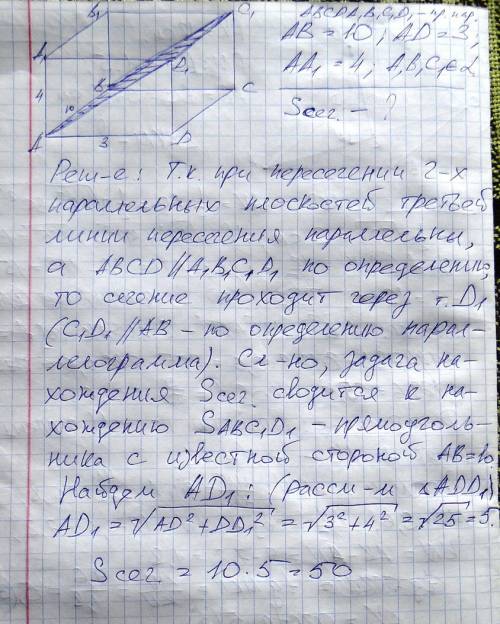 ABCDA₁B₁C₁D₁ – пр. пар.
AB = 10; AD = 3,
AA₁ = 4; A, B, C₁ ∈ α
Sсег. – ?
B₁ C₁
A₁ D₁
4 10 B C
A 3 D
Реш-е: Т.к. при пересегении 2-х
параллельных плоскостей третьей
линии пересегения параллельны,
а ABCD // A₁B₁C₁D₁ по определению,
то сегение проходит герез т. D₁
(C₁D₁ // AB – по определению парал-
лелограмма). Сл-но, задага на-
хождения Sсег. сводится к на-
хождению SABC₁D₁ – прямоуголь-
ника с известной стороной AB=10
Найдем AD₁: (рассм-м △ADD₁)
AD₁ = √AD² + DD₁² = √3² + 4² = √25 = 5
Sсег = 10 · 5 = 50